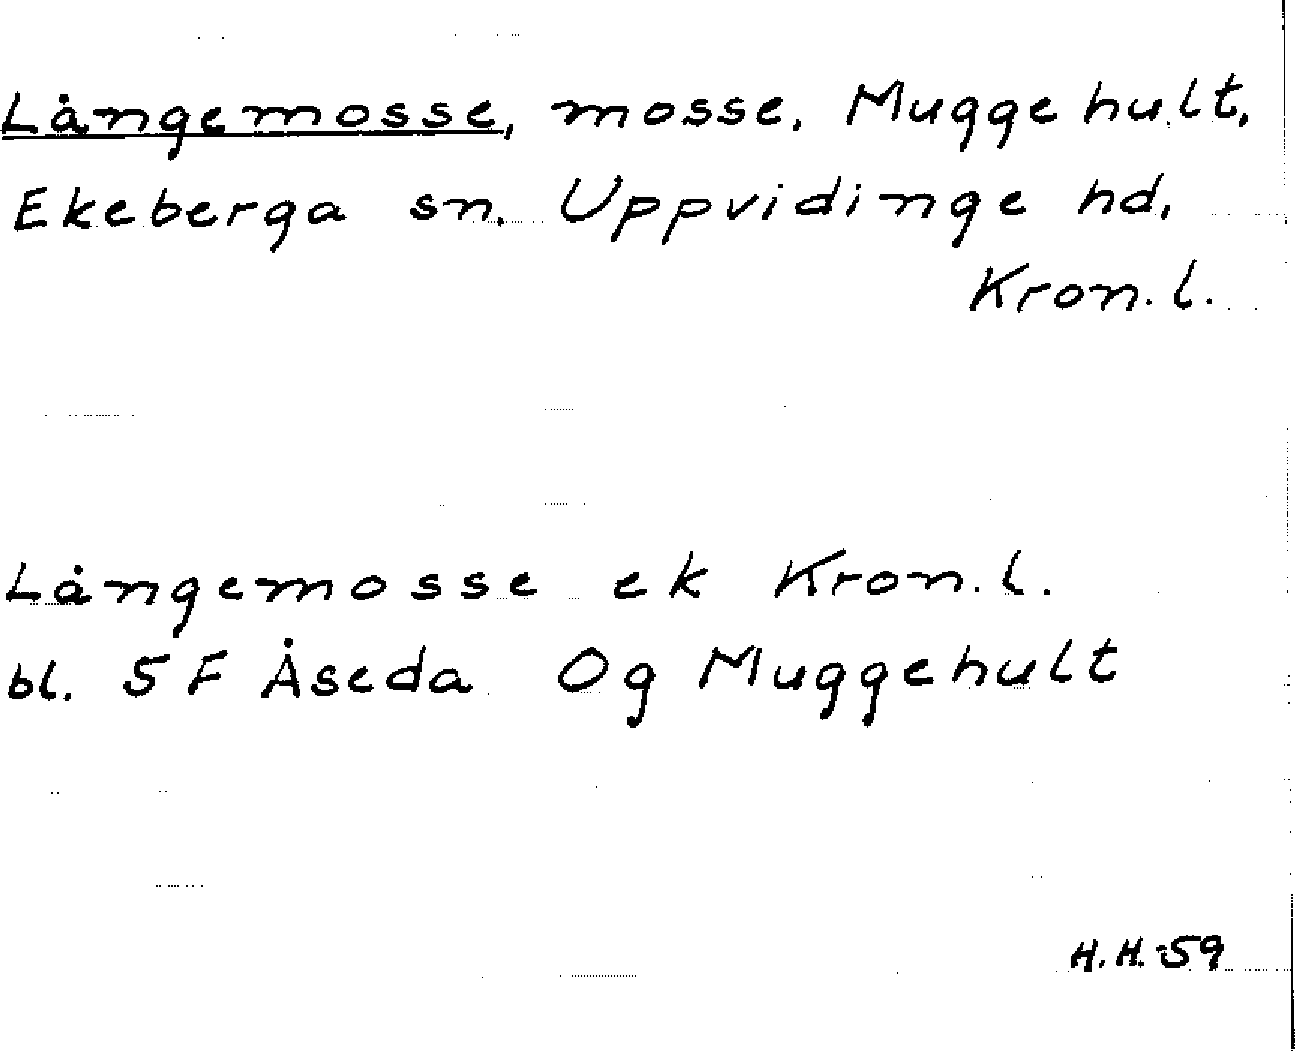 Långemosse, mosse, Muggehult,
Ekeberga sn. Uppvidinge hd,
Kron. l.
Långemosse ek Kron. l.
bl. 5F Åseda Og Muggehult
H. H. -59